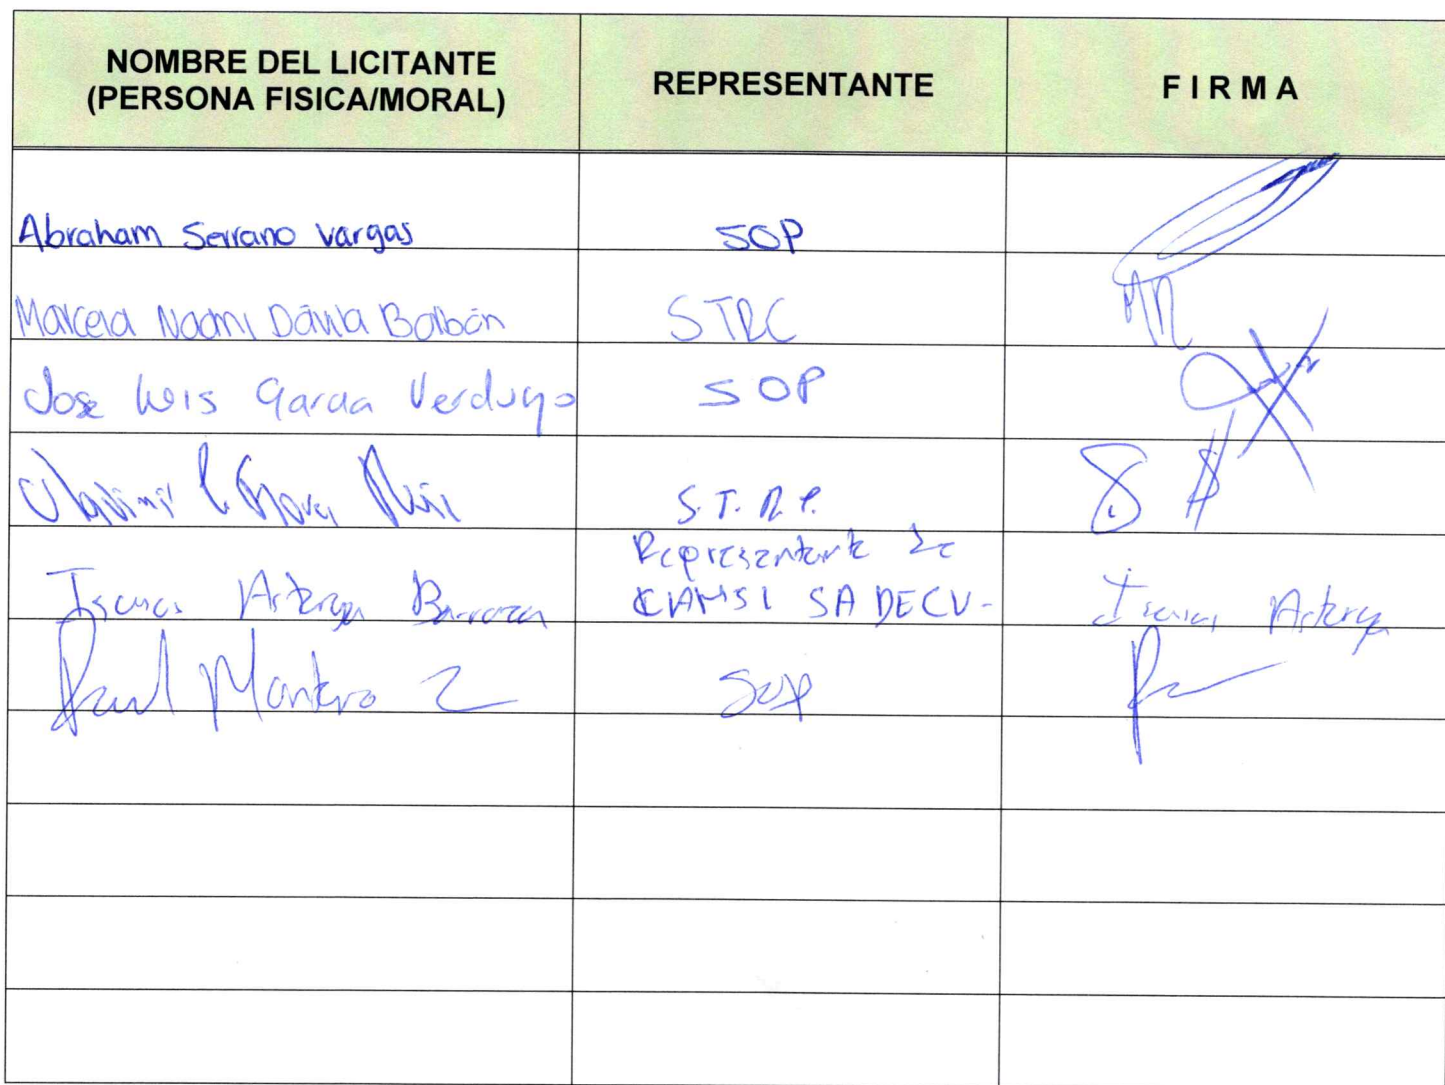 NOMBRE DEL LICITANTE
(PERSONA FISICA/MORAL)
REPRESENTANTE
F I R M A
Abraham Serrano Vargas
SOP
Marcela Naomi Dávila Balbán
STRC
Jose Luis Garcia Verdugo
SOP
Vladimir
S.T.R.C.
Isaias Arteaga Barraza
Representante de
CIAMSI SA DE CV.
Isaias Arteaga
Raul Montero Z
SOP